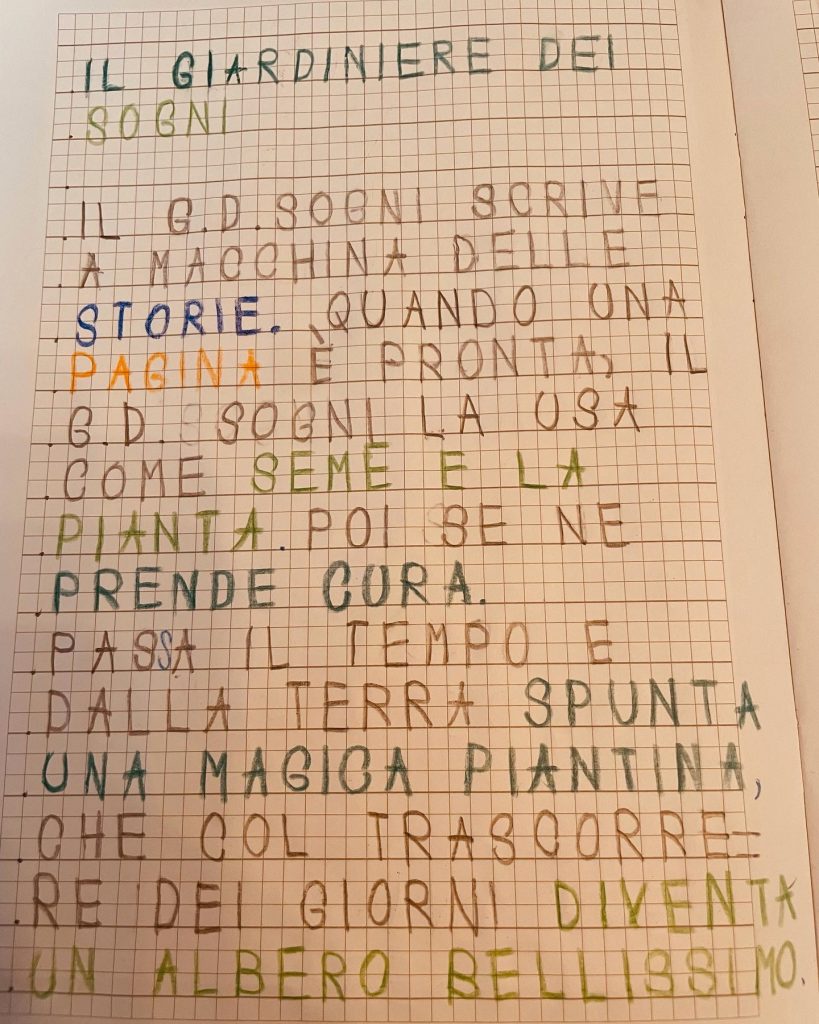 IL GIARDINIERE DEI
SOGNI
IL G.D.SOGNI SCRIVE
A MACCHINA DELLE
STORIE. QUANDO UNA
PAGINA È PRONTA, IL
G.D. SOGNI LA USA
COME SEME E LA
PIANTA. POI SE NE
PRENDE CURA.
PASSA IL TEMPO E
DALLA TERRA SPUNTA
UNA MAGICA PIANTINA,
CHE COL TRASCORRE=
RE DEI GIORNI DIVENTA
UN ALBERO BELLISSIMO.